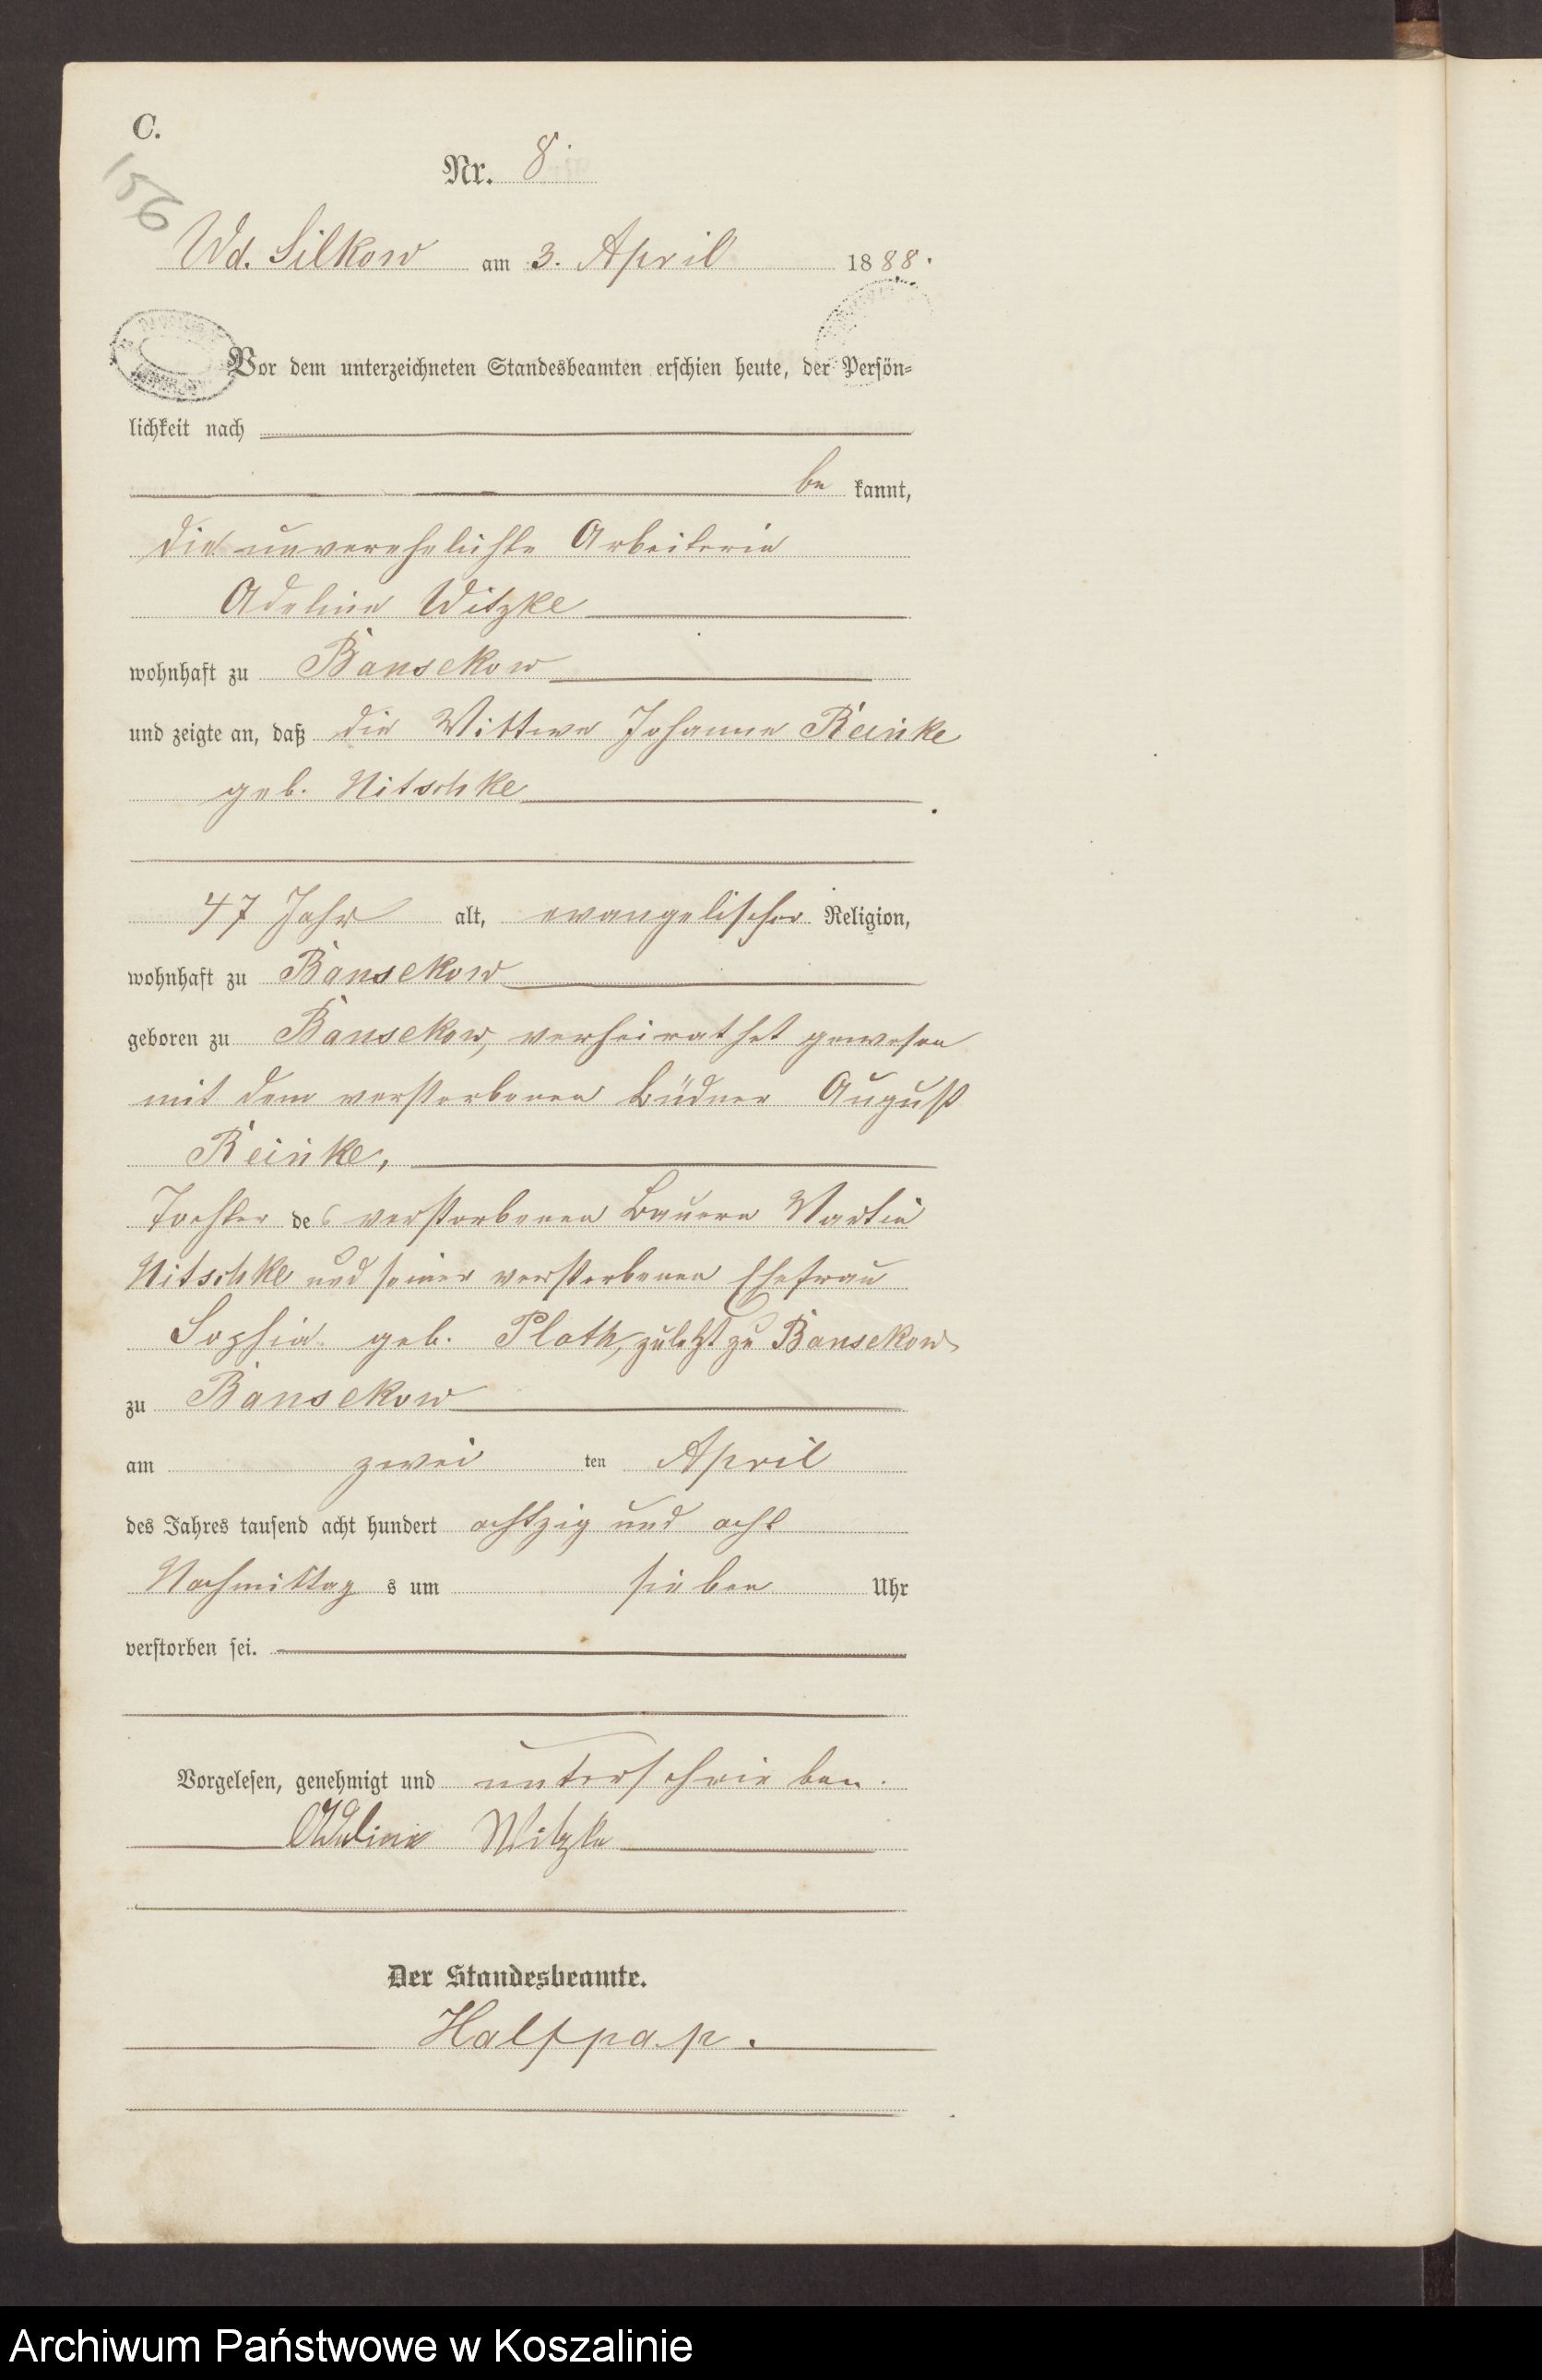 C.
156
Nr. 8.
Wd. Silkow am 3. April 1888.
Vor dem unterzeichneten Standesbeamten erschien heute, der Persön-
lichkeit nach
bekannt,
die unverehelichte Arbeiterin
Adeline Witzke
wohnhaft zu Bansekow
und zeigte an, daß die Wittwe Johanne Reinke
geb. Nitschke
47 Jahr alt, evangelischer Religion,
wohnhaft zu Bansekow
geboren zu Bansekow, verheirathet gewesen
mit dem verstorbenen Büdner August
Reinke,
Tochter des verstorbenen Bauern Martin
Nitschke und seiner verstorbenen Ehefrau
Sophia geb. Ploth, zuletzt zu Bansekow
zu Bansekow
am zwei ten April
des Jahres tausend acht hundert achtzig und acht
Nachmittag s um sieben Uhr
verstorben sei.
Vorgelesen, genehmigt und unterschrieben.
Adeline Witzke
Der Standesbeamte.
Halfpap.
Archiwum Państwowe w Koszalinie